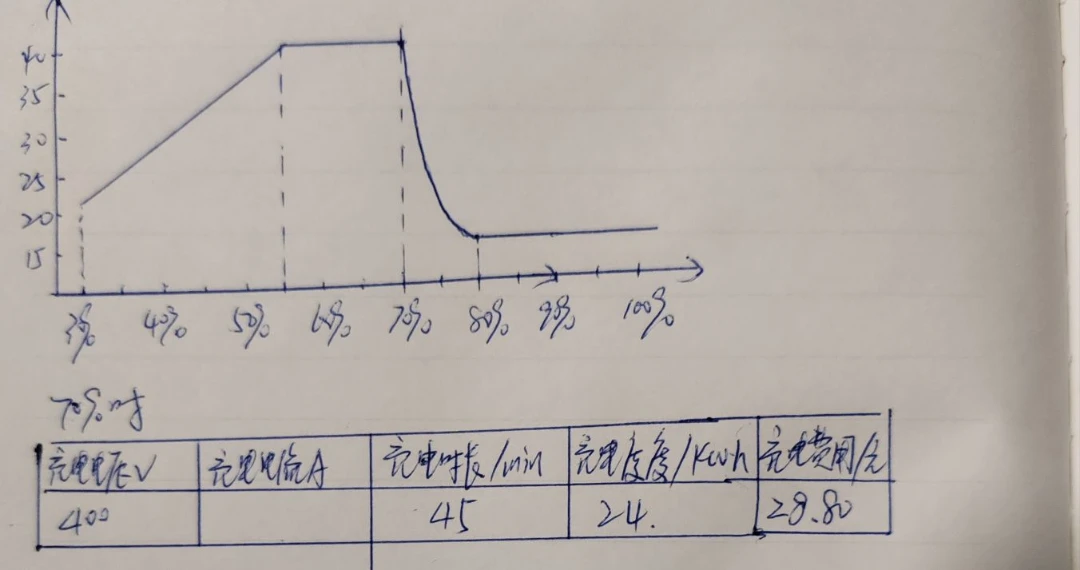 40
35
30
25
20
15
30% 40% 50% 60% 70% 80% 90% 100%
70%时
充电电压V 充电电流A 充电时长/min 充电度度/Kw·h 充电费用/元
400 45 24. 28.80